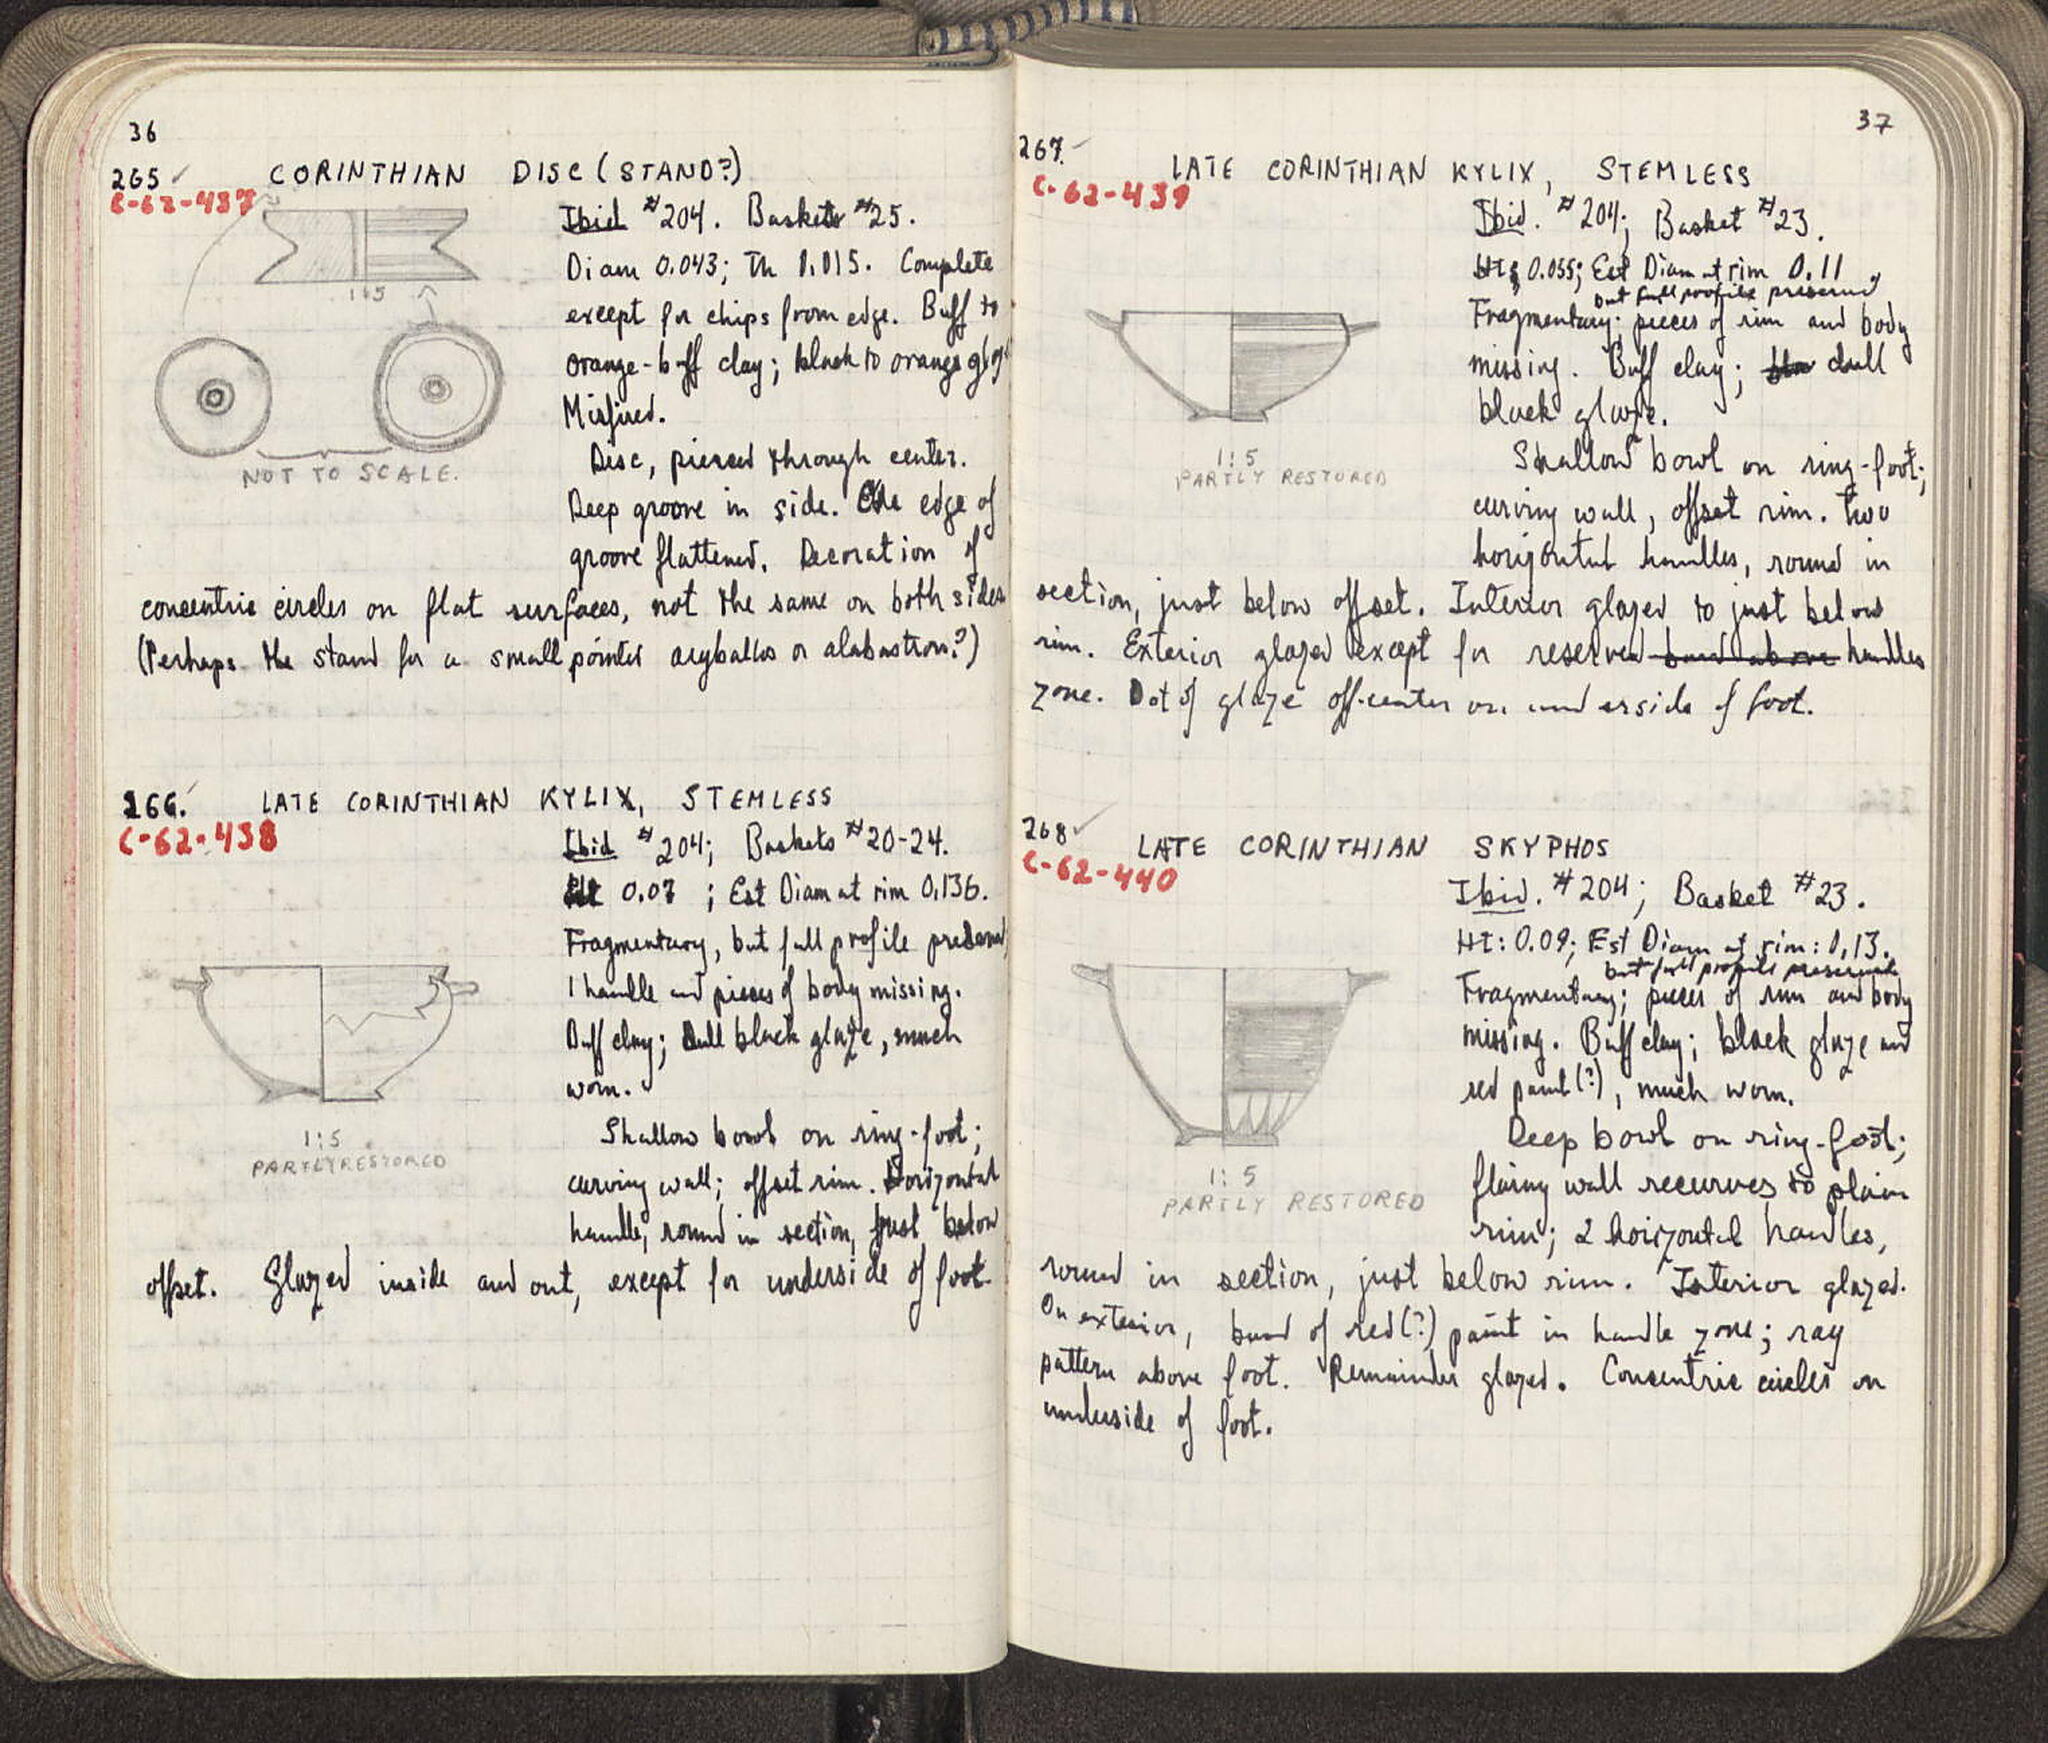 36
265 ✓ CORINTHIAN DISC (STAND?)
C-62-437
Ibid #204. Baskets #25.
Diam 0.043; Th 0.015. Complete
except for chips from edge. Buff to
orange-buff clay; black to orange
Misfired.
Disc, pierced through center.
Deep groove in side. One edge of
groove flattened. Decoration of
concentric circles on flat surfaces, not the same on both sides
(Perhaps the stand for a small pointed aryballos or alabastron?)
1:5
NOT TO SCALE.
266. ✓ LATE CORINTHIAN KYLIX, STEMLESS
C-62-438
Ibid #204; Baskets #20-24.
Ht 0.07 ; Est Diam at rim 0.136.
Fragmentary, but full profile preserved;
1 handle and pieces of body missing.
Buff clay; dull black glaze, much
worn.
Shallow bowl on ring-foot;
curving wall; offset rim. Horizontal
handle, round in section, just below
offset. Glazed inside and out, except for underside of foot.
1:5
PARTLY RESTORED
37
267. ✓ LATE CORINTHIAN KYLIX, STEMLESS
C-62-439
Ibid. #204; Basket #23.
Ht; 0.055; Est Diam at rim 0.11
but full profile preserved
Fragmentary; pieces of rim and body
missing. Buff clay; dull
black glaze.
Shallow bowl on ring-foot;
curving wall, offset rim. Two
horizontal handles, round in
section, just below offset. Interior glazed to just below
rim. Exterior glazed except for reserved band above handles
zone. Dot of glaze off-center on underside of foot.
1:5
PARTLY RESTORED
268 ✓ LATE CORINTHIAN SKYPHOS
C-62-440
Ibid. #204; Basket #23.
Ht: 0.09; Est Diam at rim: 0.13.
but full profile preserved
Fragmentary; pieces of rim and body
missing. Buff clay; black glaze and
red paint(?), much worn.
Deep bowl on ring-foot;
flaring wall recurves to plain
rim; 2 horizontal handles,
round in section, just below rim. Interior glazed.
On exterior, band of red(?) paint in handle zone; ray
pattern above foot. Remainder glazed. Concentric circles on
underside of foot.
1:5
PARTLY RESTORED